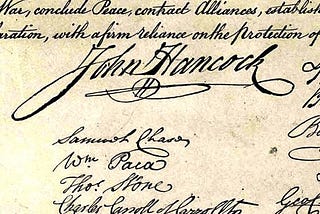 War, conclude Peace, contract Alliances, establish
aration, with a firm reliance on the protection of
John Hancock
Samuel Chase
Wm. Paca
Thos. Stone
Charles Carroll of Carrollton